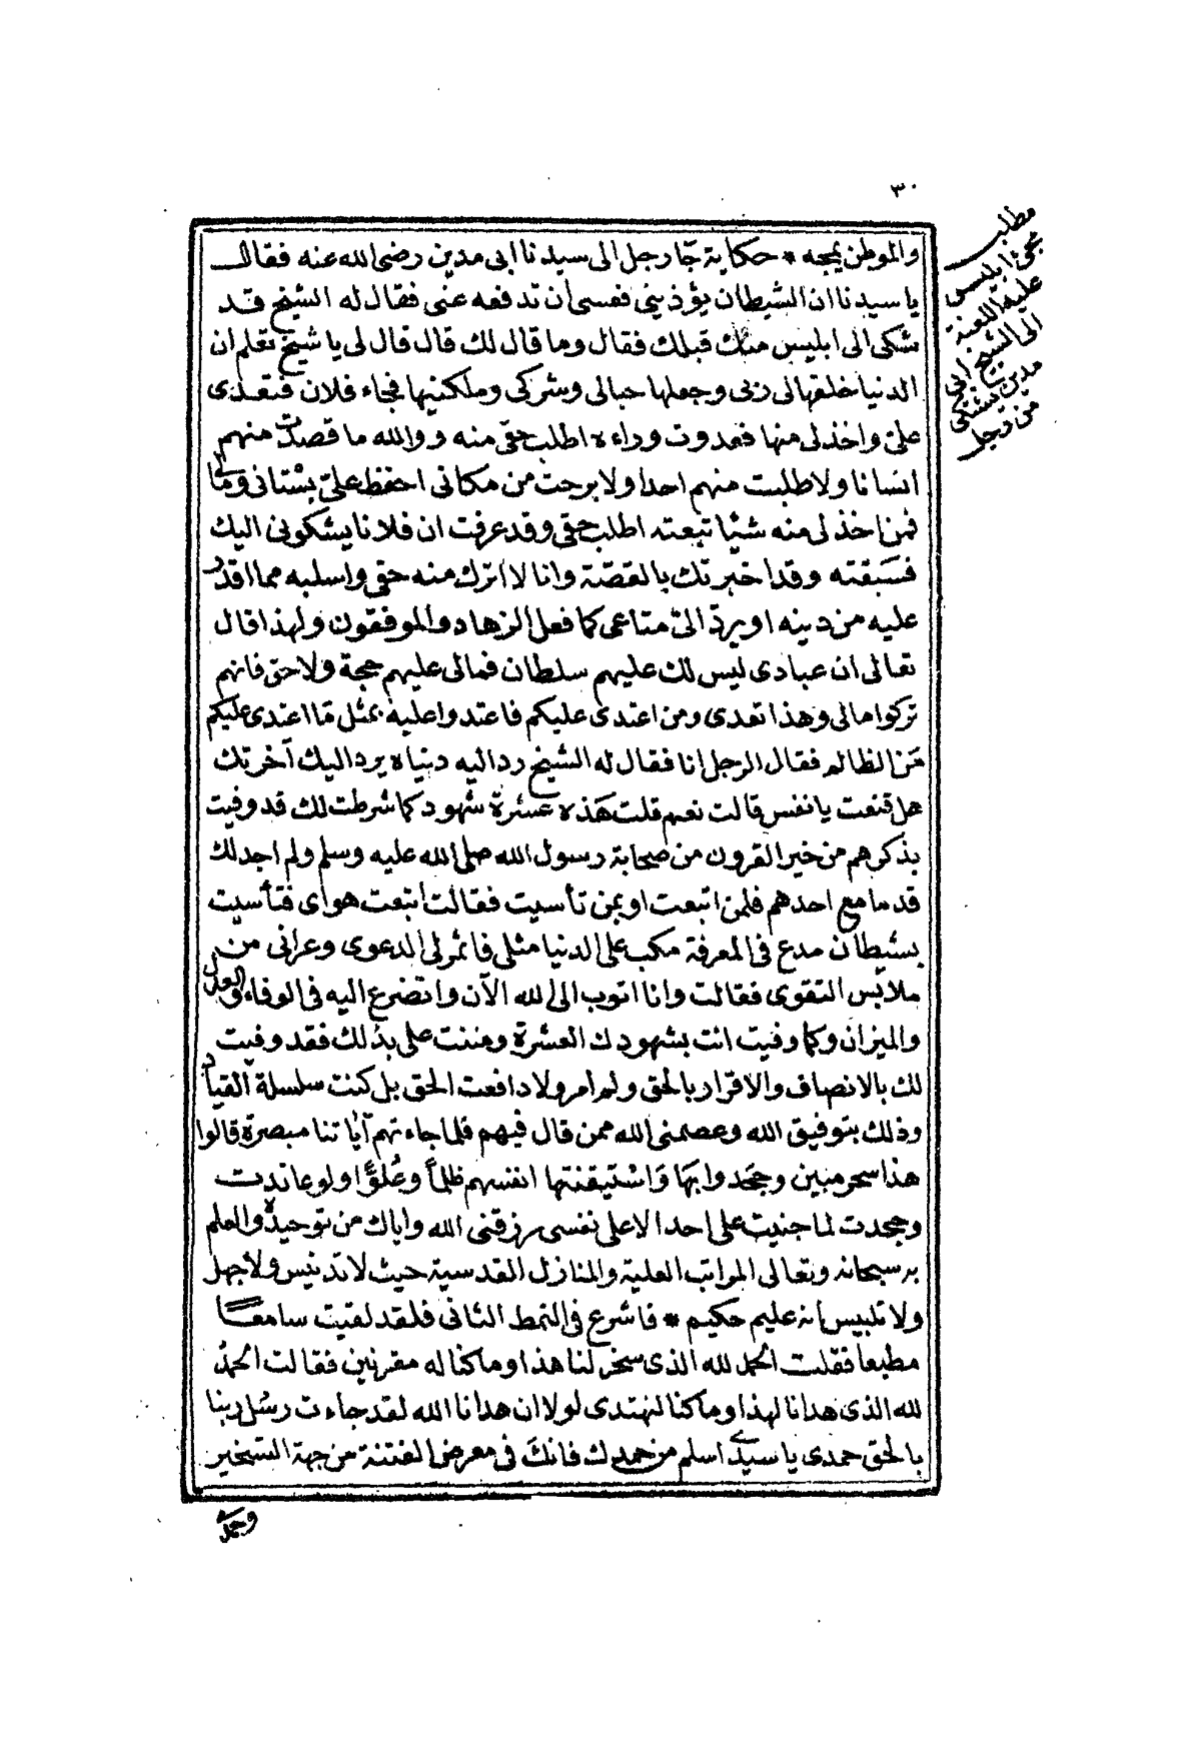 ٣٠
مطلب
مجئ ابليس
عليه اللعنة
الى الشيخ ابى
مدين يشتكى
من رجل
والموطن يمجه * حكاية جاء رجل الى سيدنا ابى مدين رضى الله عنه فقال
يا سيدنا ان الشيطان يؤذينى فعسى ان تدفعه عنى فقال له الشيخ قد
شكى الى ابليس منك قبلك فقال وما قال لك قال قال لى يا شيخ تعلم ان
الدنيا خلقها لى ربى وجعلها حبالى وشركى وملكنيها فجاء فلان فتعدى
علىّ واخذ لى منها فعدوت وراءه اطلب حقى منه ووالله ما قصدت منهم
انسانا ولا طلبت منهم احدا ولا برحت من مكانى احفظ علىّ بستانى ومالى
فمن اخذ لى منه شيئا تبعته اطلب حقى وقد عرفت ان فلانا يشكونى اليك
فسبقته وقد اخبرتك بالقصّة وانا لا اترك منه حقى واسلبه مما اقدر
عليه من دينه او يردّ الىّ متاعى كما فعل الزهاد والموفقون ولهذا قال
تعالى ان عبادى ليس لك عليهم سلطان فمالى عليهم حجة ولا حق فانهم
تركوا مالى وهذا تعدى ومن اعتدى عليكم فاعتدوا عليه بمثل ما اعتدى عليكم
مَن الظالم فقال الرجل انا فقال له الشيخ رد اليه دنياه يرد اليك آخرتك
هل قنعت يا نفس قالت نعم قلت هذه عشرة شهود كما شرطت لك قد وفيت
بذكرهم من خير القرون من صحابة رسول الله صلى الله عليه وسلم ولم اجد لك
قدما مع احدهم فلمن اتبعت او بمن تأسيت فقالت اتبعت هواى فتأسيت
بشيطان مدع فى المعرفة مكب على الدنيا مثلى فاثمر لى الدعوى وعرانى من
ملابس التقوى فقالت وانا اتوب الى الله الآن واتضرع اليه فى الوفاء والعدل
والميزان وكما وفيت انت بشهودك العشرة ومننت على بذلك فقد وفيت
لك بالانصاف والاقرار بالحق ولم امر ولا دافعت الحق بل كنت سلسلة القياد
وذلك بتوفيق الله وعصمنى الله ممن قال فيهم فلما جاءتهم آياتنا مبصرة قالوا
هذا سحر مبين وجحدوا بها وَاستيقنتها انفسهم ظلماً وعُلوًّا ولو عاندت
وجحدت لما جنيت على احد الا على نفسى رزقنى الله واياك من توحيده والعلم
به سبحانه وتعالى المراتب العلية والمنازل القدسية حيث لا تدنيس ولا جهل
ولا تلبيس انه عليم حكيم * فاشرع فى النمط الثانى فلقد لقيت سامعًا
مطيعا فقلت الحمد لله الذى سخر لنا هذا وما كنا له مقرنين فقالت الحمدُ
لله الذى هدانا لهذا وما كنا لنهتدى لولا ان هدانا الله لقد جاءت رسُل ربنا
بالحق حمدى يا سيدى اسلم من حمدك فانك فى معرض الفتنة من جهة التسخير
وحمدى